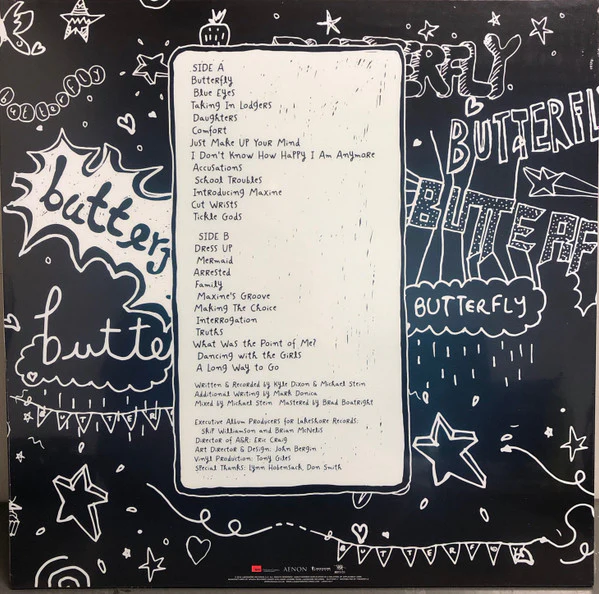 BUTTERFLY
BUTTERFLY
butterfly
SIDE A
Butterfly
Blue Eyes
Taking In Lodgers
Daughters
Comfort
Just Make Up Your Mind
I Don't Know How Happy I Am Anymore
Accusations
School Troubles
Introducing Maxine
Cut Wrists
Tickle Gods
SIDE B
Dress Up
Mermaid
Arrested
Family
Maxine's Groove
Making The Choice
Interrogation
Truths
What Was the Point of Me?
Dancing with the Girls
A Long Way to Go
Written & Recorded by Kyle Dixon & Michael Stein
Additional Writing by Mark Donica
Mixed by Michael Stein Mastered by Brad Boatright
Executive Album Producers for Lakeshore Records:
Skip Williamson and Brian McNelis
Director of A&R: Eric Craig
Art Director & Design: John Bergin
Vinyl Production: Tony Giles
Special Thanks: Lynn Hobensack, Don Smith
ERFLY
BUTTERFL
BUTTERF
BUTTERFLY
butterf
butte
BUTTER
BUTTERFLY
AENON